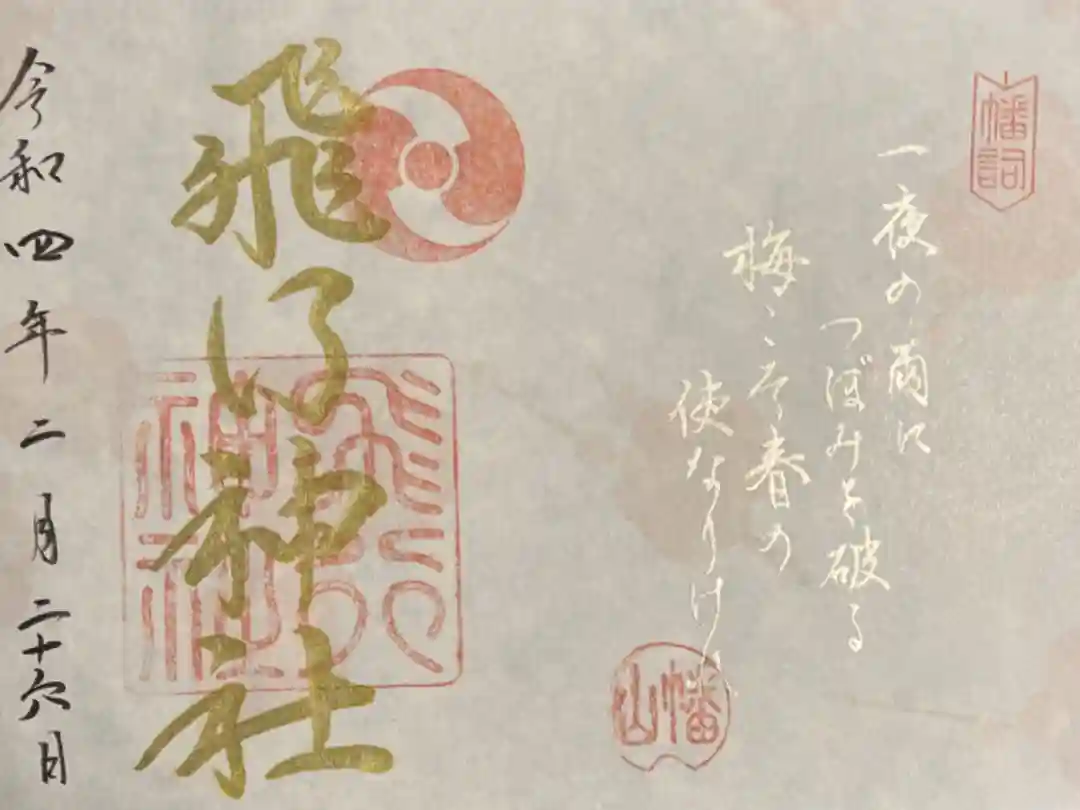 幡詞
一夜の雨に
つぼみを破る
梅こそ春の
使なりけれ
幡山
飛行神社
飛行神社
令和四年二月二十六日